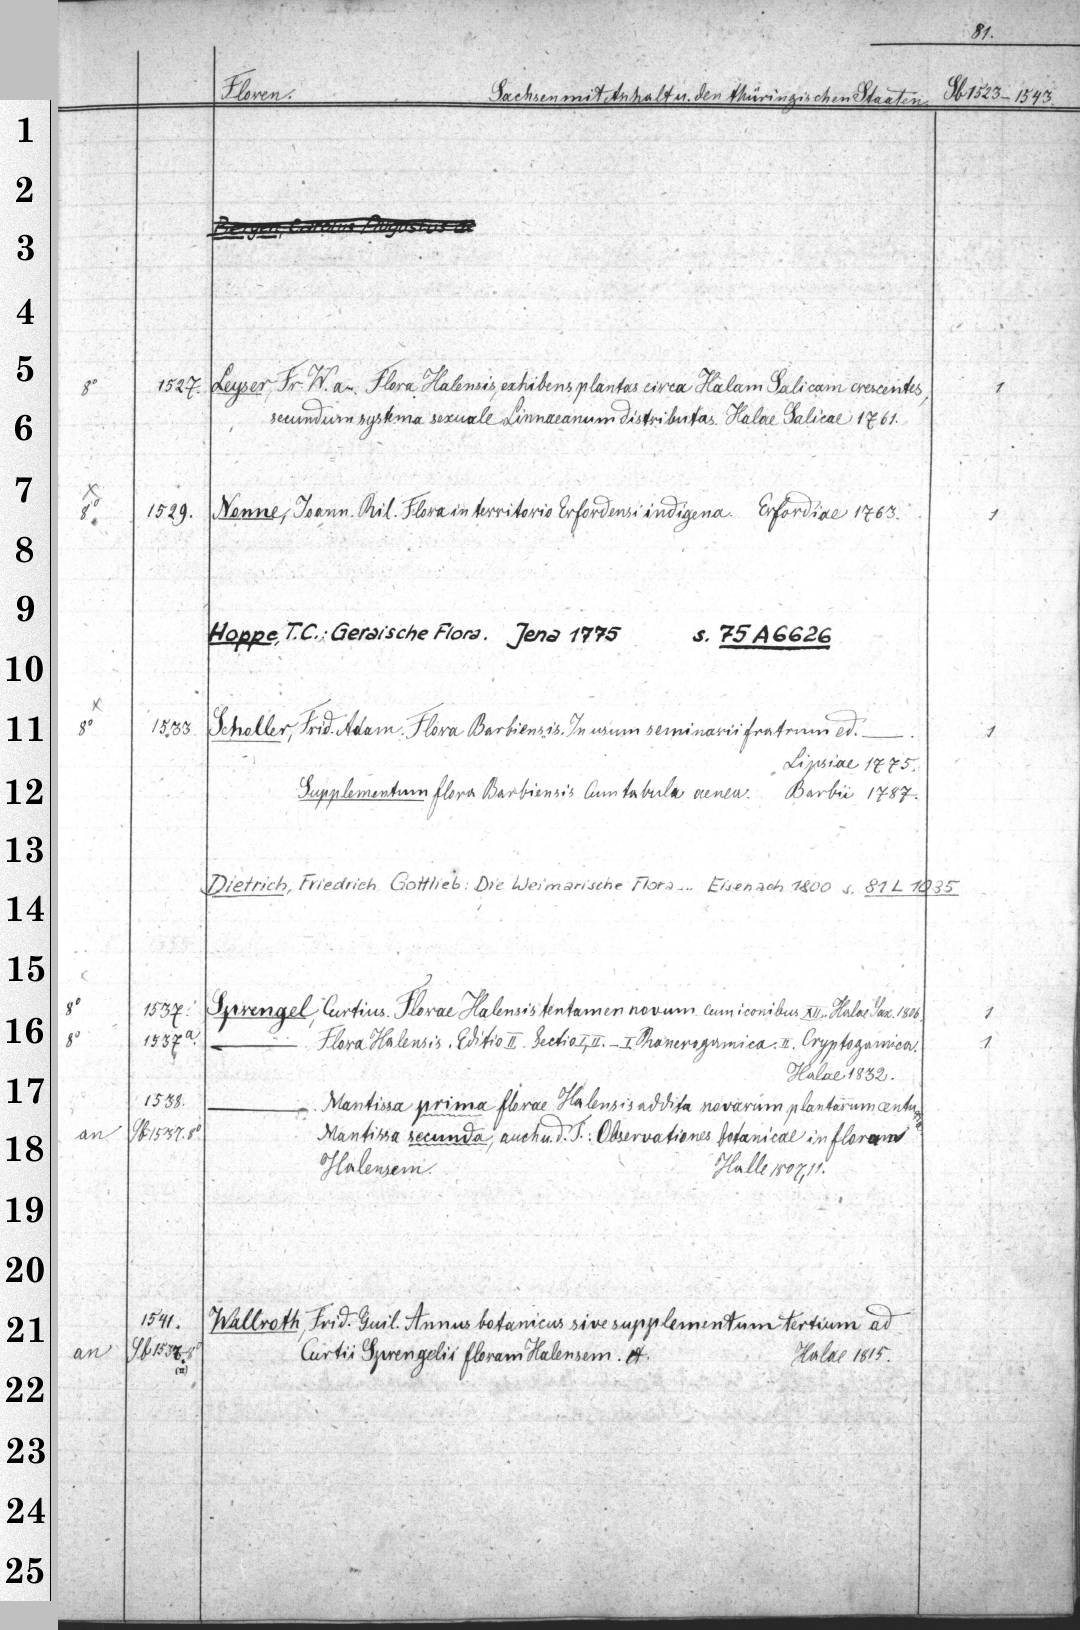 81.
Floren. Sachsen mit Anhalt u. den thüringischen Staaten. Sb 1523-1543
1
2
Bergen, Carolus Augustus de
3
4
5
8° 1527. Leyser, Fr. W. a. Flora Halensis, exhibens plantas circa Halam Salicam crescentes, 1
secundum systema sexuale Linnaeanum distributas. Halae Salicae 1761.
6
7
x
8° 1529. Nonne, Joann. Phil. Flora in territorio Erfordensi indigena. Erfordiae 1763. 1
8
9
Hoppe, T.C.: Geraische Flora. Jena 1775 s. 75 A 6626
10
x
11
8° 1533 Scholler, Frid. Adam. Flora Barbiensis. In usum seminarii fratrum ed. —. 1
Lipsiae 1775.
12
Supplementum flora Barbiensis Cum tabula aenea. Barbii 1787.
13
Dietrich, Friedrich Gottlieb: Die Weimarische Flora... Eisenach 1800 s. 81 L 1035
14
15
8° 1537. Sprengel, Curtius. Florae Halensis tentamen novum cum iconibus XII. Halae Sax. 1806. 1
16
8° 1537a. — Flora Halensis. Editio II. Sectio I, II. – I. Phanerogamica. II. Cryptogamica. 1
Halae 1832.
17
1538. — Mantissa prima florae Halensis addita novarum plantarum centuria
18
an Sb 1537. 8° Mantissa secunda, auch u. d. T.: Observationes botanicae in floram
Halensem. Halle 1807, 11.
19
20
21
1541. Wallroth, Frid. Guil. Annus botanicus sive supplementum tertium ad
an Sb 1537. 8° Curtii Sprengelii floram Halensem. Halae 1815.
(II)
22
23
24
25